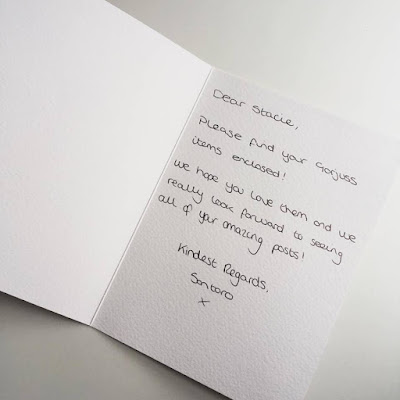 Dear Stacie,
Please find your Gorjuss
items enclosed!
We hope you love them and we
really look forward to seeing
all of your amazing posts!
Kindest Regards,
Santoro
x